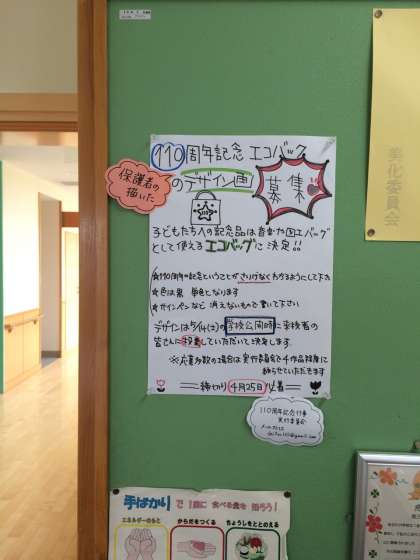 110周年記念 エコバック
のデザイン画
募集
保護者の
描いた
110
子どもたちへの記念品は音楽や図工バッグ
として使えるエコバッグに決定!!
★110周年の記念ということがさりげなくわかるようにして下さい
★色は黒 単色となります
★サインペンなど 消えないもので書いて下さい
デザインは5/14(土)の学校公開時に来校者の
皆さんに投票していただいて決定します。
※応募多数の場合は実行委員会で4作品程度に
絞らせていただきます
締切り 4月25日 必着
110周年記念行事
実行委員会
メールアドレス
美化委員会
手ばかりで1食に食べる量を知ろう!
エネルギーのもと
からだをつくる
ちょうしをととのえる